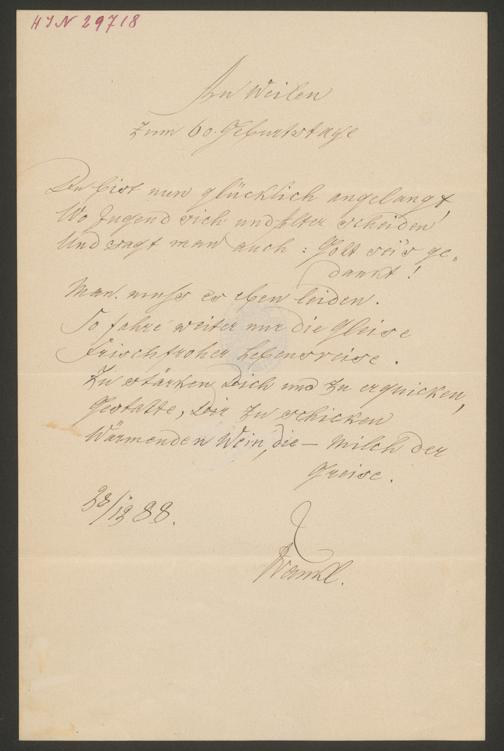 HIN 29718
An Weilen
zum 60. Geburtstage
Du bist nun glücklich angelangt,
Wo Jugend sich und Alter scheiden
Und sagt man auch: Gott sei's ge-
dankt!
Man muss es eben leiden.
So fahre weiter nur die Gleise
Frischfroher Lebensreise.
Zu stärken Dich und zu erquicken,
Gestatte, Dir zu schicken
Wärmenden Wein, die – Milch der
Greise.
28/12 88.
Frankl.